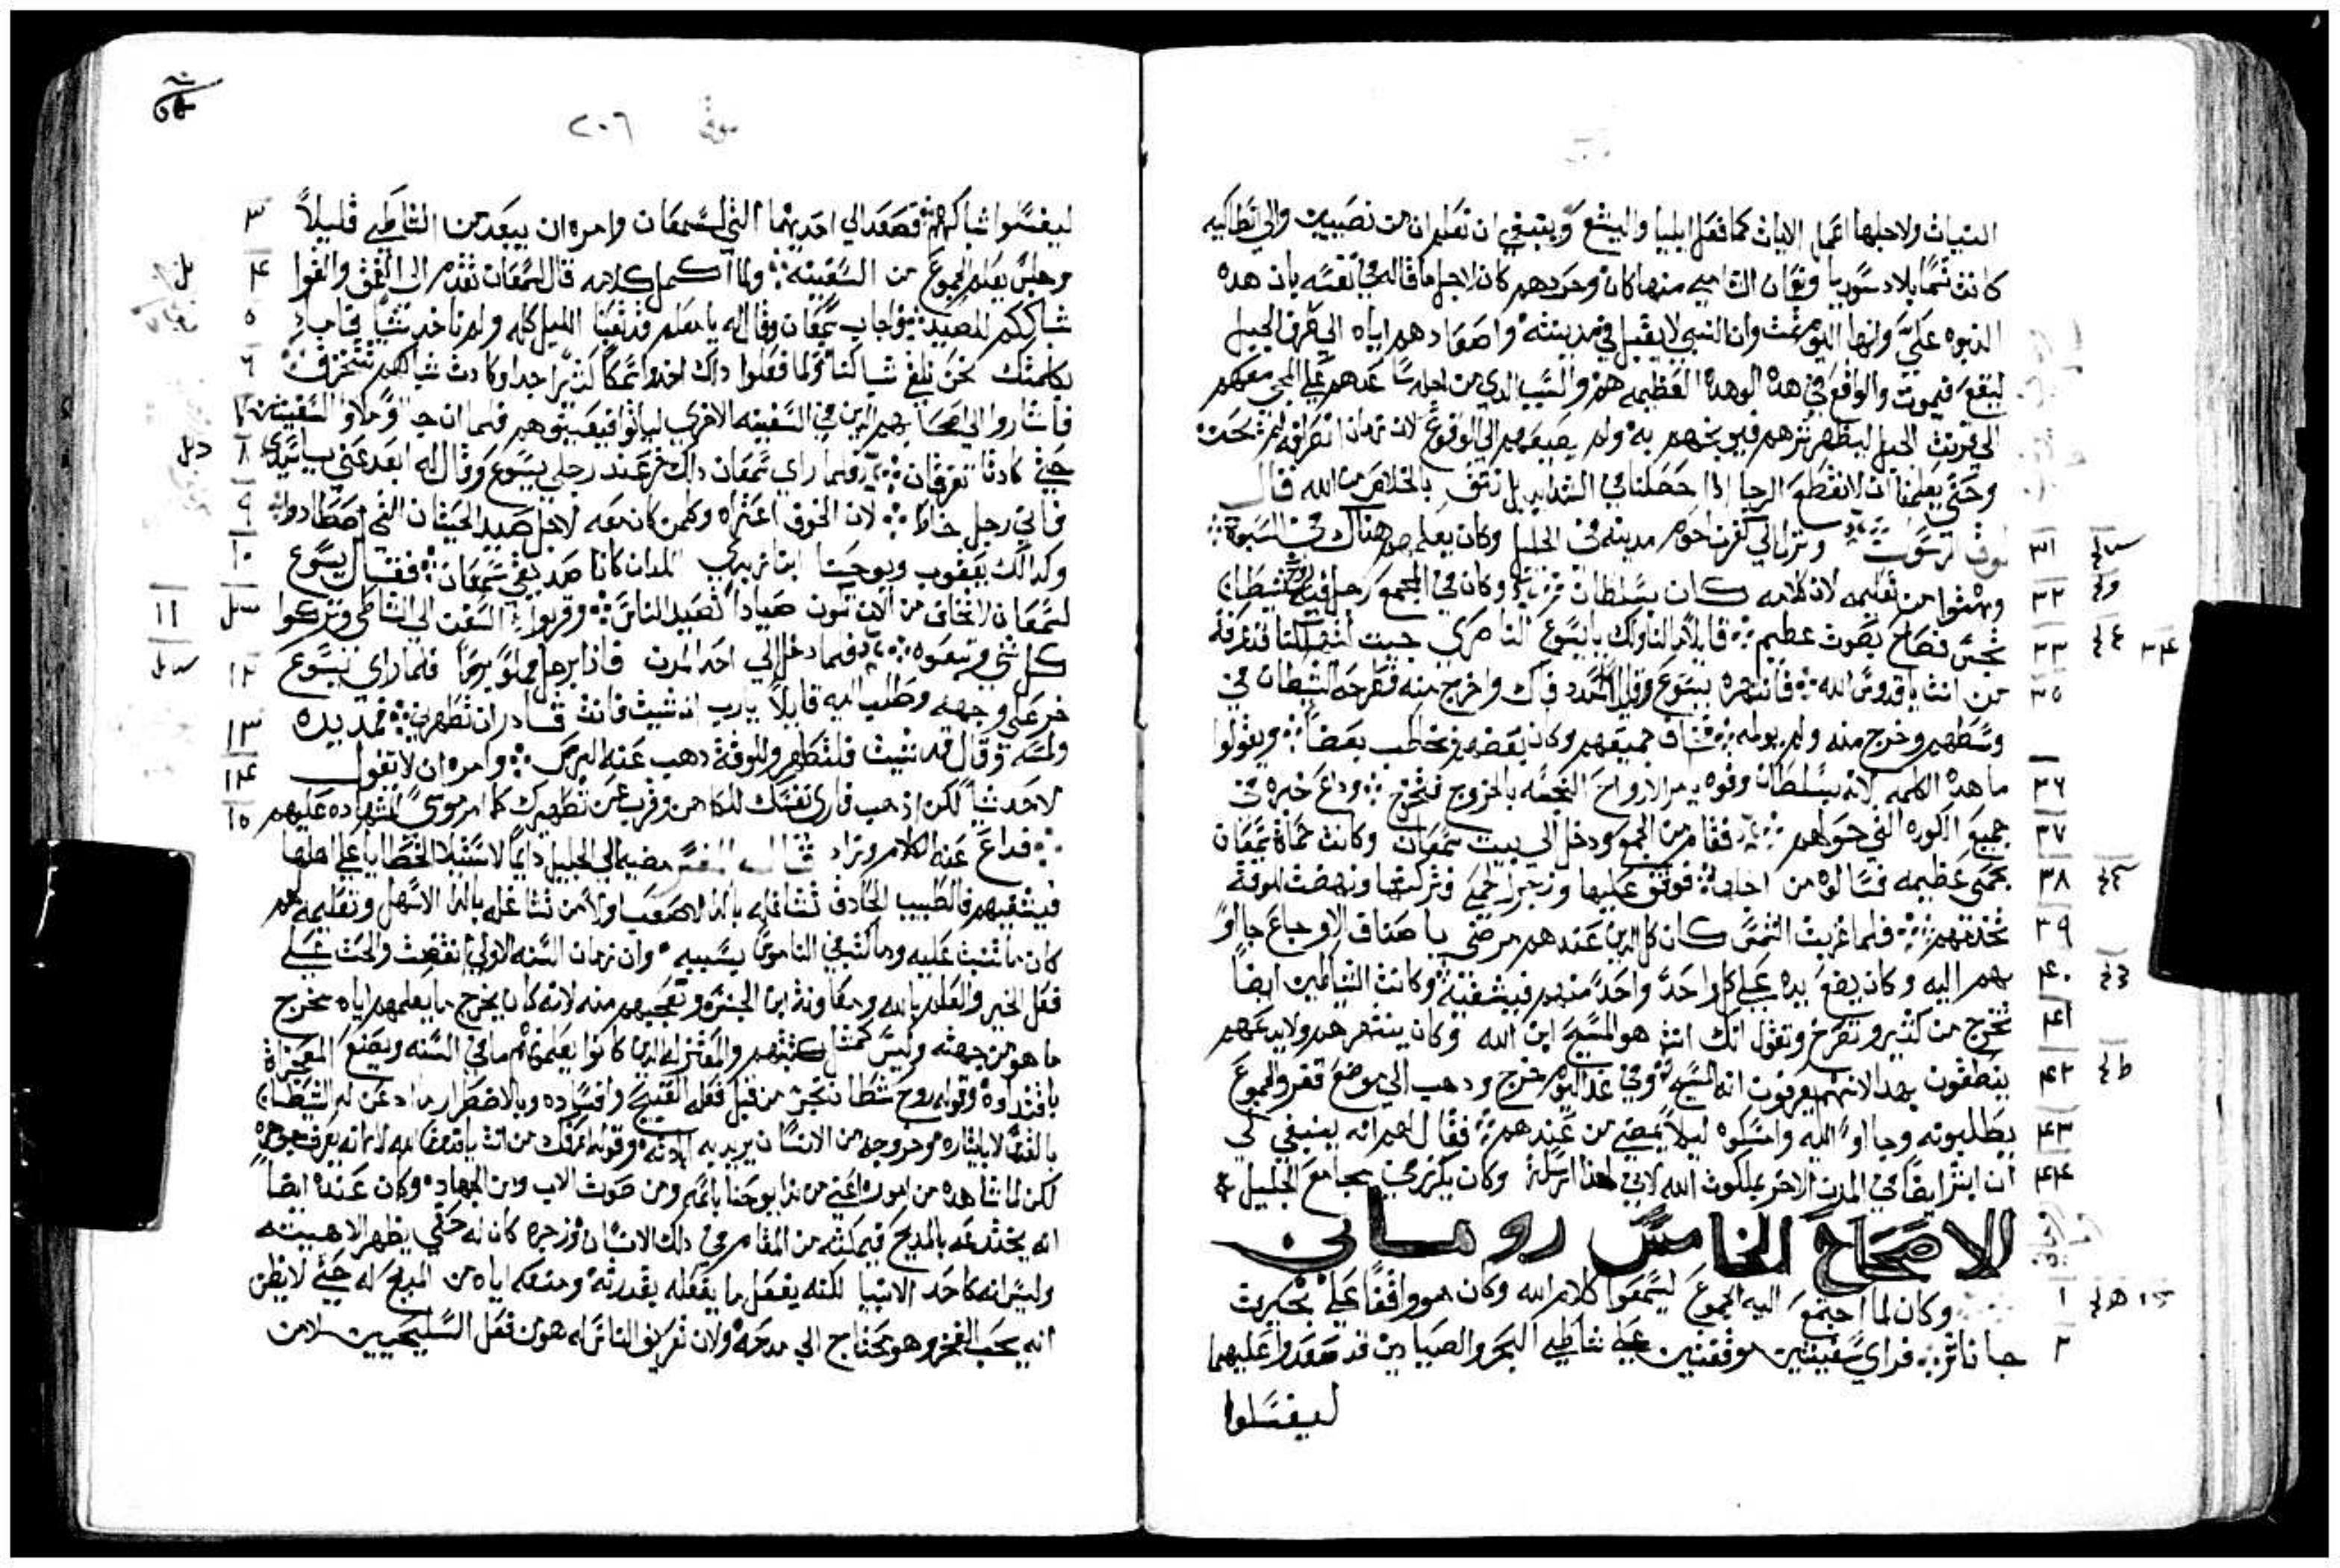 النيات ولاجلها تعمل الايات كما فعل ايليا واليشع وينبغي ان تعلم ان من نصيبين والي انطاكيه
كانت تسما بلاد سوريا ونعمان الشامي منها كان وحردهم كان لاجل ما قاله في نفسه بان هده
النبوه عليَّ وانها اليوم تمت وان النبي لا يقبل في مدينته واصعادهم اياه الي قرن الجبل
ليقع فيموت والواقع في هذه الوهده العظيمه هم والسبب الدي من اجله ساعدهم علي المجي معهم
الي قرنت الجبل ليظهر شرهم فيوبخهم به ولم يضيفهم الي الوقوع لان زمان انصرافه لم يحن
وحتي يعلمنا ان لا نقطع الرجا اذا حصلنا في الشدايد بل نثق بالخلاص من الله قال
لوق الرسول ونزل الي كفرناحوم مدينه في الجليل وكان يعلمهم هناك في السبوت
٣١
وبهتوا من تعليمه لان كلامه كان بسلطان وكان في المجمع رجل فيه روح شيطان
٣٢
نجس فصاح بصوت عظيم قايلا ما لنا ولك يا يسوع الناصري جيت لتهلكنا قد عرفنا
٣٣ ٣٤
من انت يا قدوس الله فانتهره يسوع وقال اسدد فاك واخرج منه فطرحه الشيطان في
٣٥
وسطهم وخرج منه ولم يولمه فخاف جميعهم وكان بعضهم يخاطب بعضا ويقولوا
ما هده الكلمه لانه بسلطان وقوه يامر الارواح النجسه بالخروج فتخرج وداع خبره في
٣٦
جميع الكوره التي حواهم فقام من المجمع ودخل الي بيت سمعان وكانت حماة سمعان
٣٧
بحمي عظيمه فسالوه من اجلها فوقف عليها وزجر الحمي فتركتها ونهضت للوقت
٣٨
تخدمهم فلما غربت الشمس كان كل الدين عندهم مرضي باصناف الاوجاع جاوا
٣٩
بهم اليه وكان يضع يده علي كل واحد واحد منهم فيشفيه وكانت الشياطين ايضا
٤٠
تخرج من كثير وتصرخ وتقول انك انت هو المسيح ابن الله وكان ينتهرهم ولا يدعهم
٤١
ينطقون بهدا لانهم يعرفون انه المسيح وفي غد اليوم خرج ودهب الي موضع قفر والجموع
٤٢
يطلبونه وجاوا اليه وامسكوه ليلا يمضي من عندهم فقال لهم انه ينبغي لي
٤٣
ان ابشر ايضا في المدن الاخر بملكوت الله لاني لهذا ارسلت وكان يكرز في مجامع الجليل
٤٤
الاصحاح الخامس روماني
وكان لما اجتمع اليه الجموع ليسمعوا كلام الله وكان هو واقفا علي بحيرت
١
جاناشر فراي سفينتين موقفتين علي شاطي البحر والصيادين قد صعدوا عليهما
٢
ليغسلوا
٢٠٦
ليغسلوا شباكهم فصعد الي احديهما التي لسمعان وامره ان يبعد من الشاطي قليلاً
٣
وجلس يعلم الجموع من السفينه ولما اكمل كلامه قال لسمعان تقدم الي العمق والقوا
٤
شباككم للصيد فاجاب سمعان وقال له يا معلم قد تعبنا الليل كله ولم ناخد شيا فاما
٥
بكلمتك نحن نلقي شباكنا ولما فعلوا داك اخدوا سمكا كثيرا جدا وكادت شباكهم تتخرق
٦
فاشاروا الي اصحابهم الدين في السفينه الاخري لياتوا فيعينوهم فلما ان جاوا وملاوا السفينتين
٧
حتي كادتا تغرقان فلما راي سمعان دلك خر عند رجلي يسوع وقال له ابعد عني يا سيدي
٨
فاني رجل خاطي لان الخوف اعتراه وكل من كان معه لاجل صيد الحيتان التي اصطادوا
٩
وكدالك يعقوب ويوحنا ابنا زبدي اللدان كانا صديقي سمعان فقال يسوع
١٠
لسمعان لا تخاف من الان تكون صيادا تصيد الناس وقربوا السفن الي الشاطي وتركوا
١١
كل شي وتبعوه فلما دخل الي احد المدن فاذا برجل مملو برصا فلما راي يسوع
١٢
خر علي وجهه وطلب اليه قايلاً يا رب ان شيت فانت قادر ان تطهرني فمد يده
١٣
ولمسه وقال قد شيت فلتطهر وللوقت دهب عنه البرص وامره ان لا تقول
١٤
لاحد شيا لكن اذهب فاري نفسك للكاهن وقرب عن تطهيرك كما امر موسي للشهاده عليهم
١٥
فداع عنه الكلام وزاد قال المفسر مضيه الي الجليل دايما لاستيلا الخطايا علي اهلها
فيشفيهم فالطبيب الحادق تشاغله بالدا الاصعب اولا من تشاغله بالدا الاسهل وتعليمه لهم
كان ما تنبت عليه وما كتب في الناموس بسببه وان زمان السنه الاولي انقضت والحث علي
فعل الخير والعلم بالله ومعاونة ابن الجنس وتعجبهم منه لانه كان يخرج ما يعلمهم اياه مخرج
ما هو من جهته وليس كمثل كتبتهم والمعتزله الدين كانوا يعلمونهم ما في السنه ويصنع المعجزات
باقتداره وقوله روح شيطان نجس من قبل فعله القبيح وافساده وبالاضطرار ما ادعن له الشيطان
لكن لما شاهده من اموره اعني من ندا يوحنا باسمه ومن صوت الاب ومن الجهاده وكان عنده ايضا
انه يختدعه بالمديح فيمكنه من المقام في دلك الانسان وزجره كان له حتي يظهر الاهيته
وليس انه كاحد الانبيا لكنه يفعل ما يفعله بقدرته ومنعه اياه من المديح له حتي لا يظن
انه يحب الفخر وهو محتاج الي مدحه ولان تعريف الناس له هو من فعل السليحيين لا من